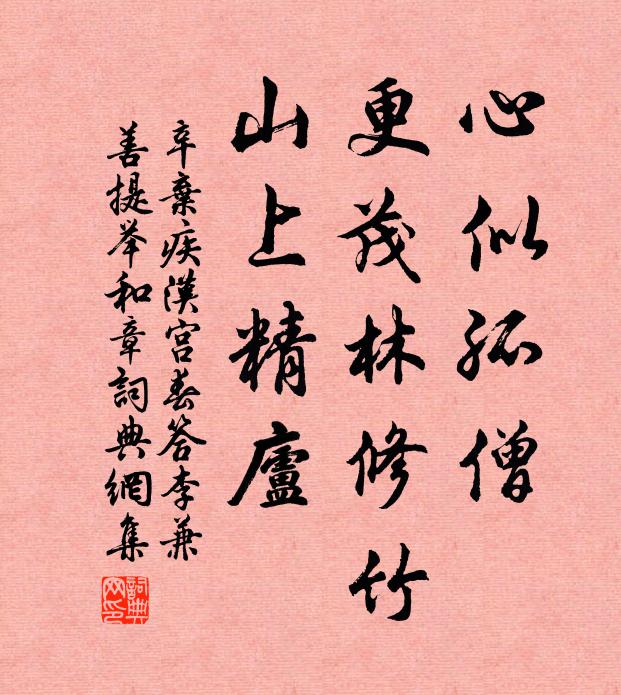 心似孤僧
更茂林修竹
山上精廬
辛棄疾漢宮春答李兼
善提举和章詞典網集
詞典
网印